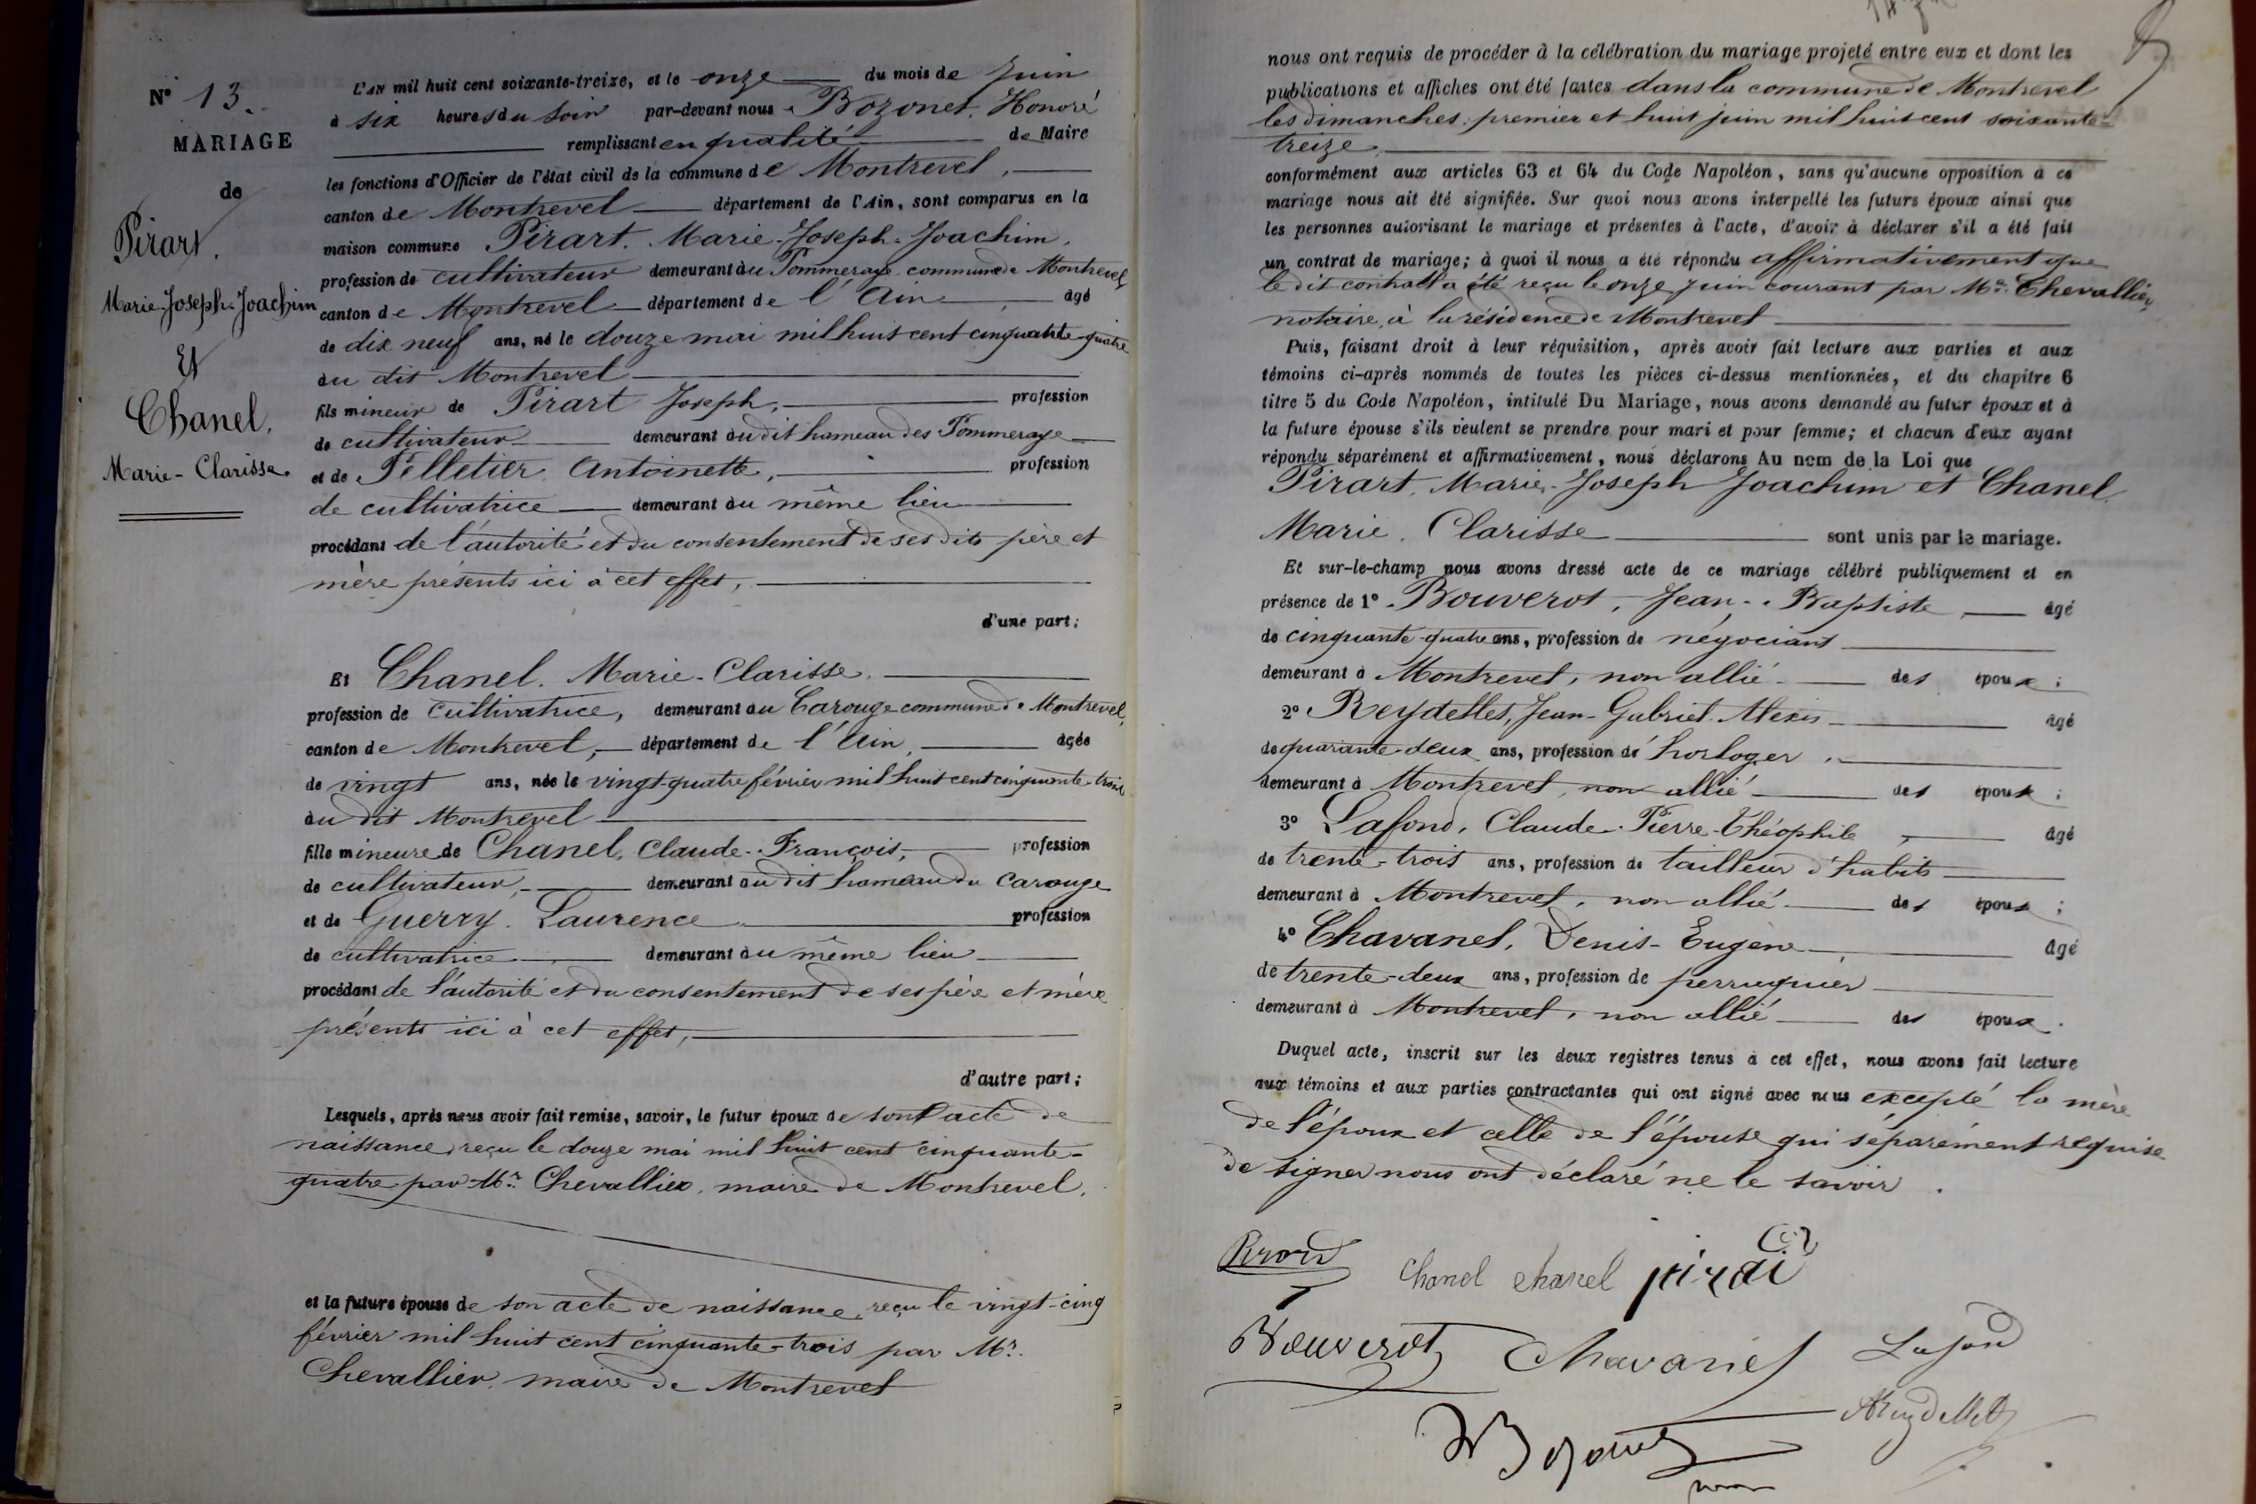 N° 13.
MARIAGE
de
Pirart.
Marie-Joseph-Joachim
Et
Chanel.
Marie-Clarisse.
L'AN mil huit cent soixante-treize, et le onze du mois de Juin
à six heures du soir par-devant nous Bozonet, Honoré
remplissant en qualité de Maire
les fonctions d'Officier de l'état civil de la commune de Montrevel,
canton de Montrevel département de l'Ain, sont comparus en la
maison commune Pirart. Marie-Joseph-Joachim,
profession de cultivateur demeurant au Pommeraye commune de Montrevel
canton de Montrevel département de l'Ain âgé
de dix neuf ans, né le douze mai mil huit cent cinquante-quatre
au dit Montrevel
fils mineur de Pirart Joseph, profession
de cultivateur demeurant au dit hameau des Pommeraye
et de Pelletier Antoinette, profession
de cultivatrice demeurant au même lieu
procédant de l'autorité et du consentement de ses dits père et
mère présents ici à cet effet,
d'une part;
Et Chanel. Marie-Clarisse.
profession de cultivatrice, demeurant au Carouge commune de Montrevel,
canton de Montrevel, département de l'Ain, âgée
de vingt ans, née le vingt-quatre février mil huit cent cinquante-trois
au dit Montrevel
fille mineure de Chanel, Claude-François, profession
de cultivateur, demeurant au dit hameau du Carouge
et de Guerry. Laurence profession
de cultivatrice demeurant au même lieu
procédant de l'autorité et du consentement de ses père et mère
présents ici à cet effet,
d'autre part;
Lesquels, après nous avoir fait remise, savoir, le futur époux de son acte de
naissance, reçu le douze mai mil huit cent cinquante-
quatre par Mr. Chevallier, maire de Montrevel.
et la future épouse de son acte de naissance, reçu le vingt-cinq
février mil huit cent cinquante-trois par Mr.
Chevallier, maire de Montrevel
nous ont requis de procéder à la célébration du mariage projeté entre eux et dont les
publications et affiches ont été faites dans la commune de Montrevel
les dimanches, premier et huit juin mil huit cent soixante-
treize,
conformément aux articles 63 et 64 du Code Napoléon, sans qu'aucune opposition à ce
mariage nous ait été signifiée. Sur quoi nous avons interpellé les futurs époux ainsi que
les personnes autorisant le mariage et présentes à l'acte, d'avoir à déclarer s'il a été fait
un contrat de mariage; à quoi il nous a été répondu affirmativement que
le dit contrat a été reçu le onze juin courant par Me. Chevallier,
notaire, à la résidence de Montrevel
Puis, faisant droit à leur réquisition, après avoir fait lecture aux parties et aux
témoins ci-après nommés de toutes les pièces ci-dessus mentionnées, et du chapitre 6
titre 5 du Code Napoléon, intitulé Du Mariage, nous avons demandé au futur époux et à
la future épouse s'ils veulent se prendre pour mari et pour femme; et chacun d'eux ayant
répondu séparément et affirmativement, nous déclarons Au nom de la Loi que
Pirart, Marie-Joseph Joachim et Chanel.
Marie. Clarisse sont unis par le mariage.
Et sur-le-champ nous avons dressé acte de ce mariage célébré publiquement et en
présence de 1° Bouverot, Jean-Baptiste, âgé
de cinquante-quatre ans, profession de négociant
demeurant à Montrevel, non allié des époux;
2° Reydellet, Jean-Gabriel-Alexis âgé
de quarante-deux ans, profession d'horloger,
demeurant à Montrevel, non allié des époux;
3° Lafond, Claude-Pierre-Théophile, âgé
de trente-trois ans, profession de tailleur d'habits
demeurant à Montrevel, non allié des époux;
4° Chavanel, Denis-Eugène, âgé
de trente-deux ans, profession de perruquier
demeurant à Montrevel, non allié des époux.
Duquel acte, inscrit sur les deux registres tenus à cet effet, nous avons fait lecture
aux témoins et aux parties contractantes qui ont signé avec nous excepté la mère
de l'époux et celle de l'épouse qui séparément requise
de signer nous ont déclaré ne le savoir.
Chanel chanel
Bouverot Chavanel Lafond
Bozonet